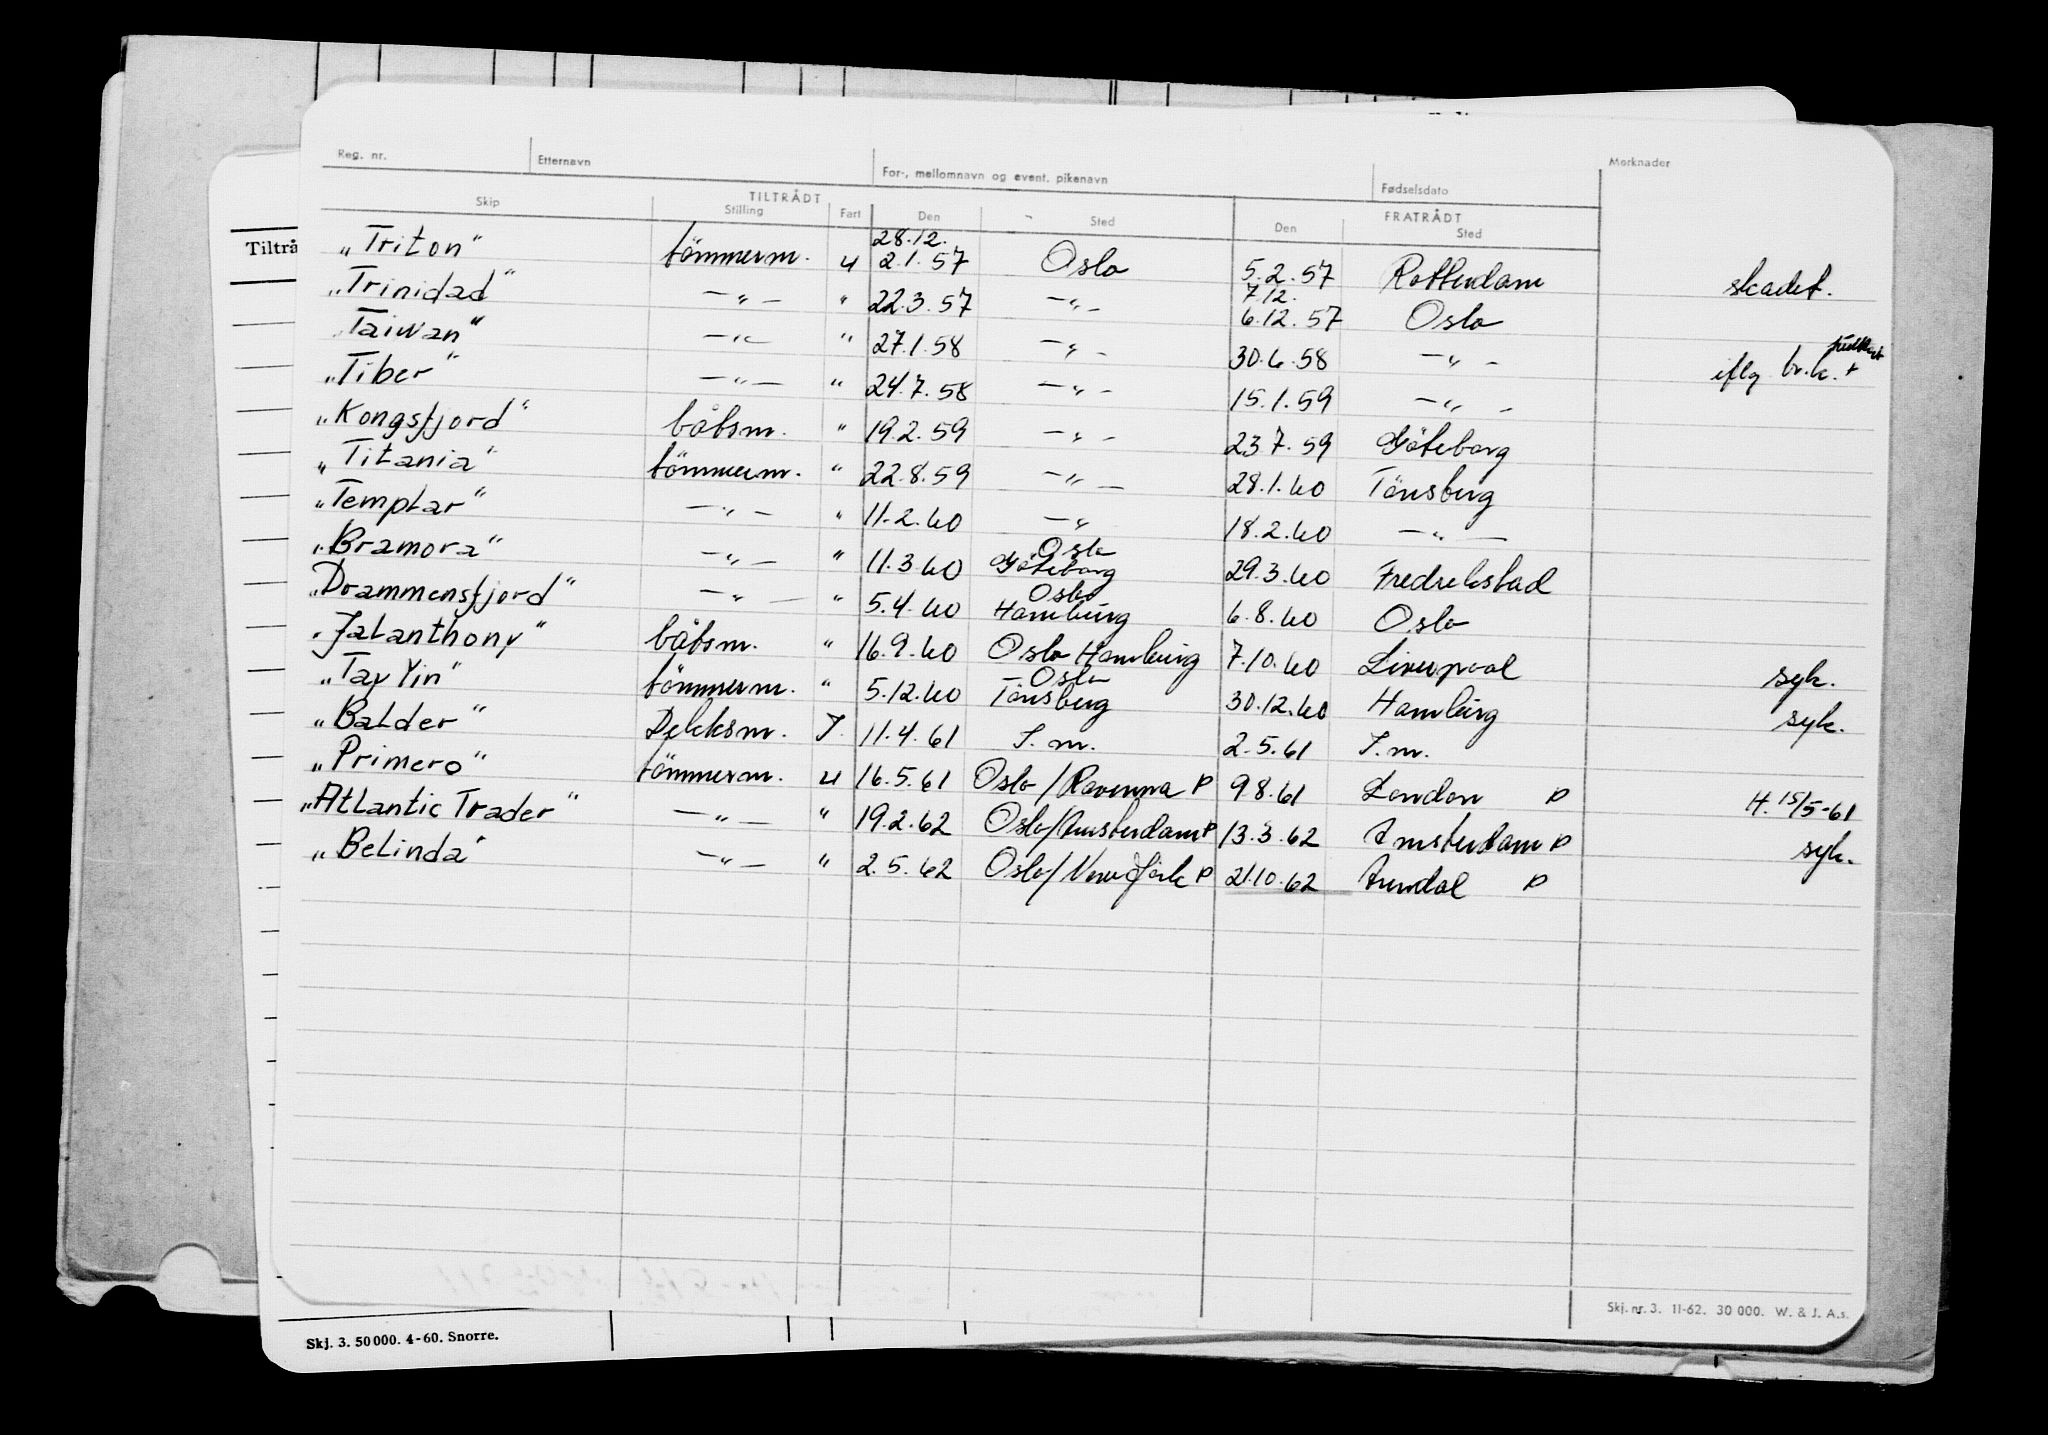 Reg. nr. Etternavn For-, mellomnavn og event. pikenavn Fødselsdato Merknader
TILTRÅDT FRATRÅDT
Skip Stilling Fart Den Sted Den Sted
Tiltrå
28.12.
"Triton" tömmerm. u 2.1.57 Oslo 5.2.57 Rotterdam skadet.
7.12.
"Trinidad" —"— " 22.3.57 —"— 6.12.57 Oslo
"Taiwan" —"— " 27.1.58 —"— 30.6.58 —"— iflg br.k. +
"Tiber" —"— " 24.7.58 —"— 15.1.59 —"—
"Kongsfjord" båtsm. " 19.2.59 —"— 23.7.59 Göteborg
"Titania" tömmerm. " 22.8.59 —"— 28.1.60 Tönsberg
"Templar" —"— " 11.2.60 —"— 18.2.60 —"—
Oslo
"Bramora" —"— " 11.3.60 Göteborg 29.3.60 Fredrikstad
Oslo
"Drammensfjord" —"— " 5.4.60 Hamburg 6.8.60 Oslo
"Jalanthony" båtsm. " 16.9.60 Oslo Hamburg 7.10.60 Liverpool syk.
Oslo
"Tay Yin" tömmerm. " 5.12.60 Tönsberg 30.12.60 Hamburg syk.
"Balder" Dekksm. I. 11.4.61 I.m. 2.5.61 I.m.
"Primero" tömmerm. u 16.5.61 Oslo/Ravenna P 9.8.61 London P H. 15/5-61
"Atlantic Trader" —"— " 19.2.62 Oslo/Amsterdam P 13.3.62 Amsterdam P syk.
"Belinda" —"— " 2.5.62 Oslo/New York P 21.10.62 Arendal P
Skj. nr. 3. 11-62. 30 000. W. & J. A.s.
Skj. 3. 50 000. 4-60. Snorre.